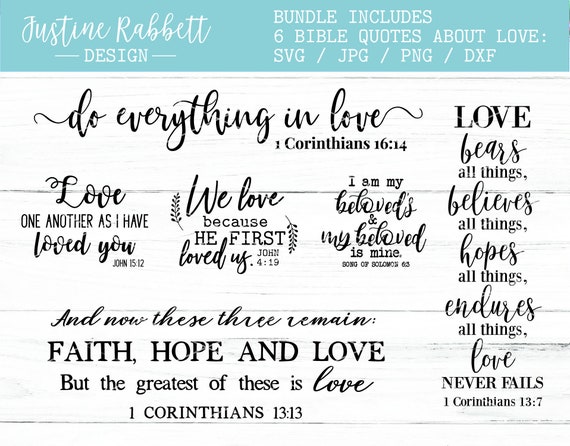 Justine Rabbett
DESIGN
BUNDLE INCLUDES
6 BIBLE QUOTES ABOUT LOVE:
SVG / JPG / PNG / DXF
do everything in love
1 Corinthians 16:14
Love
ONE ANOTHER AS I HAVE
loved you
JOHN 15:12
We love
because
HE FIRST
loved us.
JOHN
4:19
I am my
beloved's
&
my beloved
is mine.
SONG OF SOLOMON 6:3
LOVE
bears
all things,
believes
all things,
hopes
all things,
endures
all things,
love
NEVER FAILS
1 Corinthians 13:7
And now these three remain:
FAITH, HOPE AND LOVE
But the greatest of these is love
1 CORINTHIANS 13:13